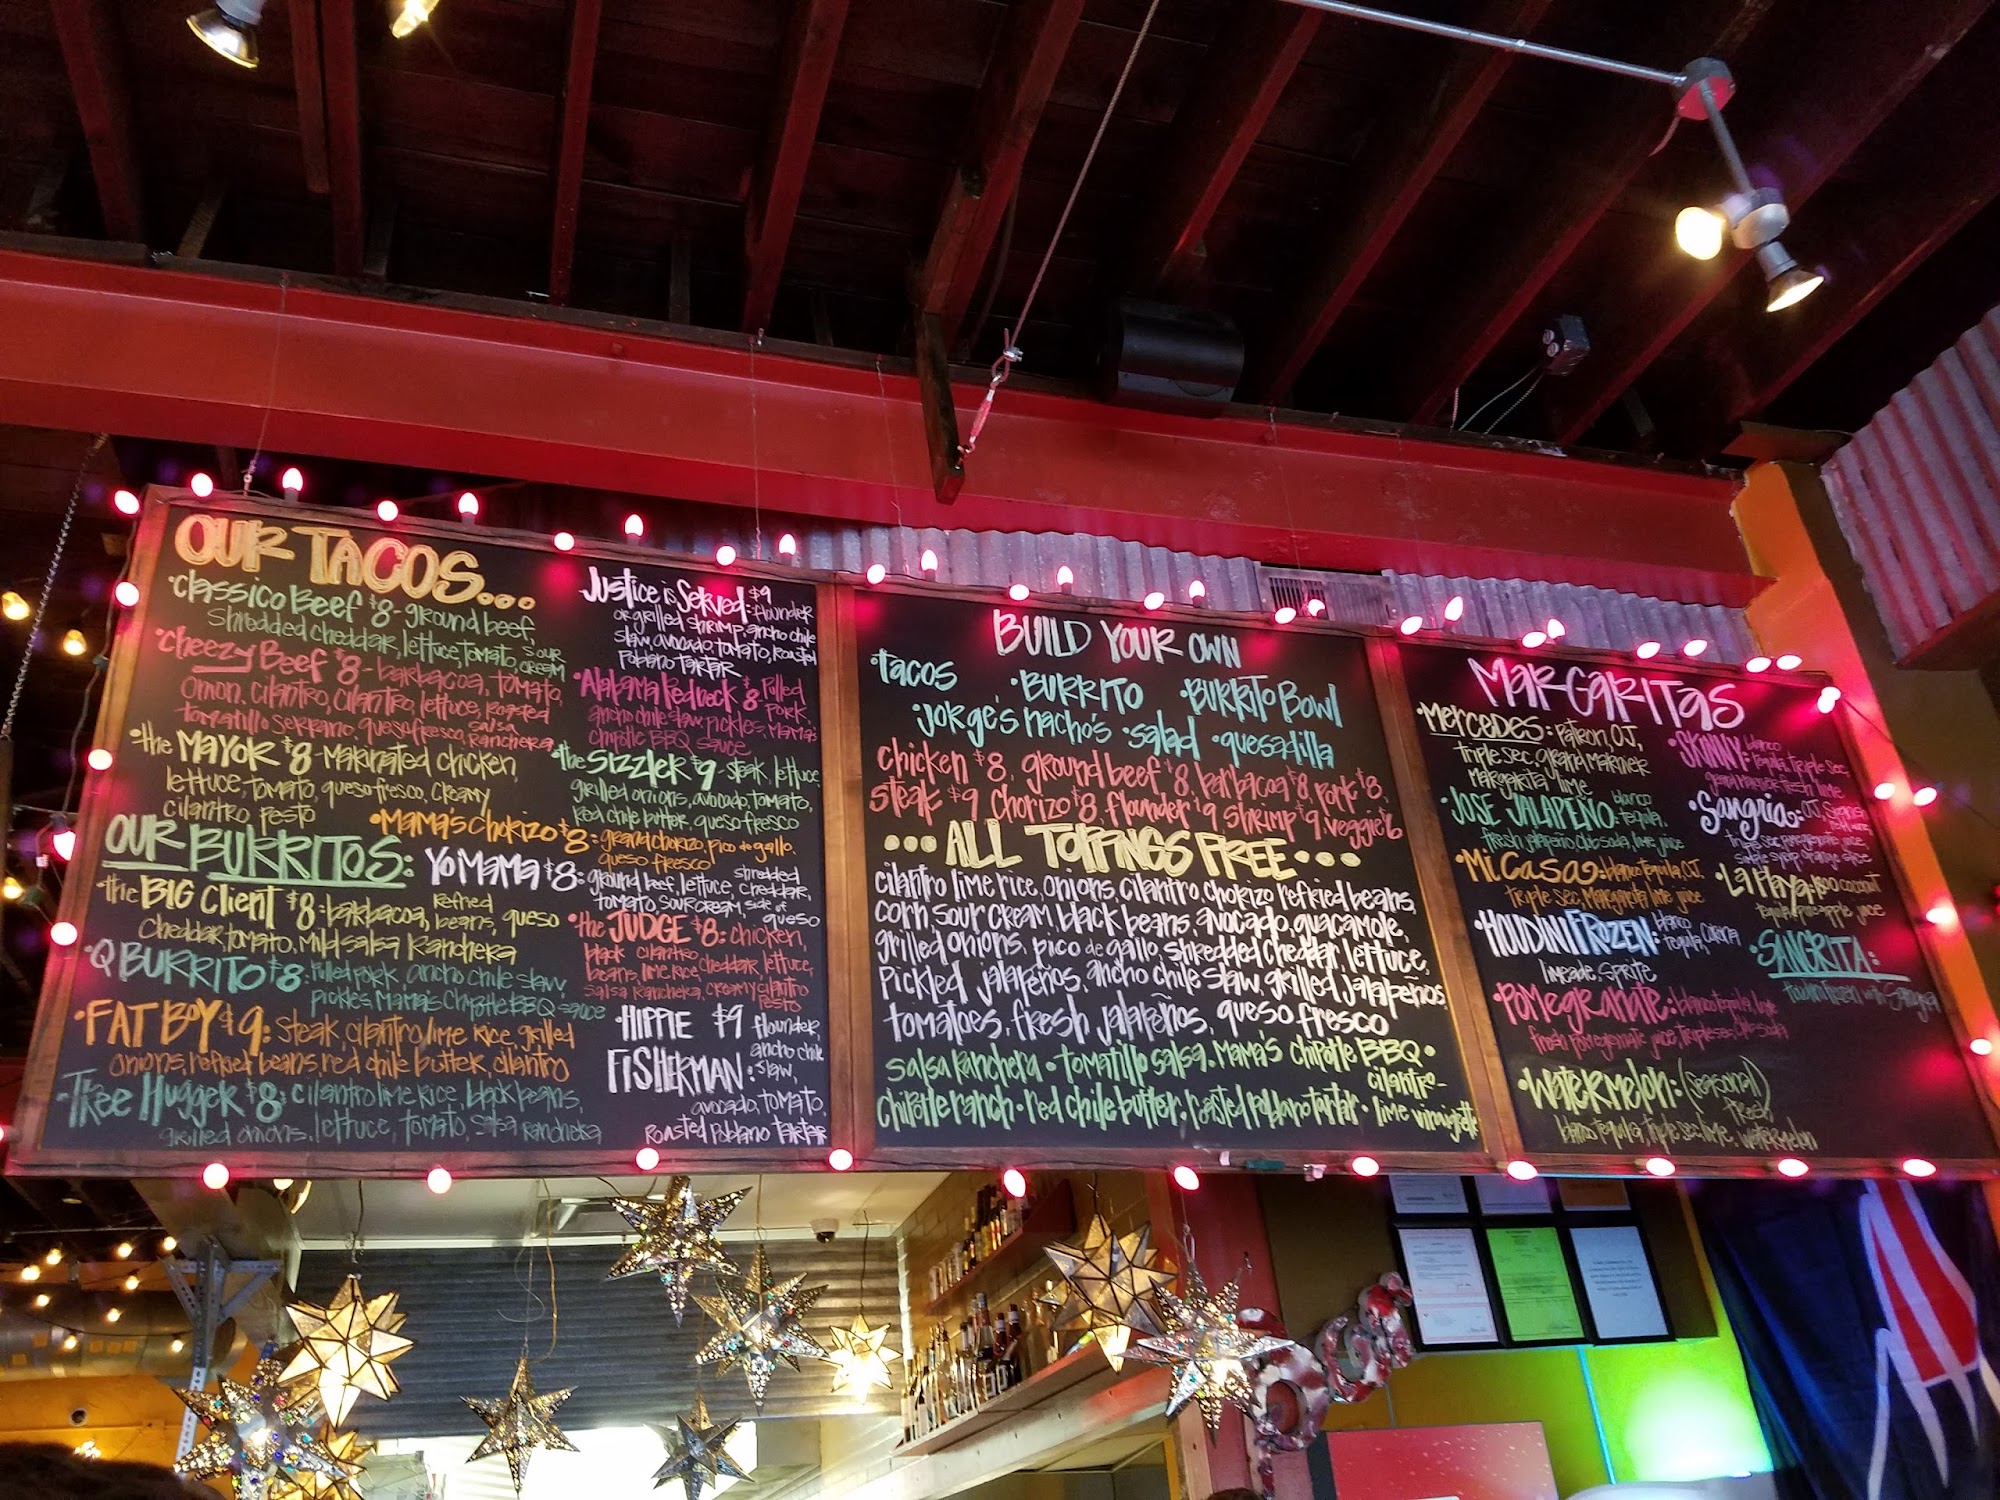 OUR TACOS...
•Classico Beef $8-ground beef,
Shredded cheddar, lettuce, tomato, sour cream
•Cheezy Beef $8-barbacoa, tomato,
onion, cilantro, cilantro, lettuce, roasted
tomatillo serrano, queso fresco, salsa Ranchera
•the MAYOR $8-Marinated chicken,
lettuce, tomato, queso fresco, creamy
cilantro pesto
Justice is Served $9 :flounder
or grilled shrimp, ancho chile
slaw, avocado, tomato, Roasted
Poblano tartar
•Alabama Redneck $8 Pulled Pork,
ancho chile slaw, pickles, Mama's
Chipotle BBQ sauce
•the Sizzler $9-steak, lettuce,
grilled onions, avocado, tomato,
Red chile butter, queso fresco
•Mama's Chorizo $8: ground chorizo, pico de gallo,
queso fresco
OUR BURRITOS:
•the BIG Client $8: barbacoa, Refried beans, queso
Cheddar, tomato, Mild salsa Ranchera
•Q BURRITO $8: Pulled pork, ancho chile slaw,
pickles, Mama's Chipotle BBQ sauce
•FAT BOY $9: Steak, cilantro lime rice, grilled
onions, refried beans, red chile butter, cilantro
•Tree Hugger $8: cilantro lime rice, black beans,
grilled onions, lettuce, tomato, salsa ranchera
Yo Mama $8: ground beef, lettuce, shredded cheddar,
tomato, sour cream, side of queso
•the JUDGE $8: chicken,
black beans, cilantro lime rice, cheddar, lettuce,
Salsa Ranchera, creamy cilantro pesto
•HIPPIE FISHERMAN $9: flounder,
ancho chile slaw,
avocado, tomato,
Roasted Poblano tartar
BUILD YOUR OWN
•Tacos •BURRITO •BURRITO BOWL
•Jorge's nacho's •salad •quesadilla
chicken $8, ground beef $8, barbacoa $8, pork $8,
steak $9 Chorizo $8, flounder $9 Shrimp $9, veggie $6
•••ALL TOPPINGS FREE•••
cilantro lime rice, onions, cilantro, chorizo refried beans,
corn, sour cream, black beans, avocado, guacamole,
grilled onions, pico de gallo, shredded cheddar, lettuce,
Pickled jalapeños, ancho chile slaw, grilled jalapeños
tomatoes, fresh jalapeños, queso fresco
salsa Ranchera • tomatillo salsa • Mama's Chipotle BBQ • cilantro-
Chipotle ranch • red chile butter • roasted poblano tartar • lime vinaigrette
MARGARITAS
•MERCEDES: Patron, OJ,
triple sec, grand marnier
Margarita lime
•JOSE JALAPEÑO: blanco tequila,
fresh jalapeño, club soda, lime juice
•Mi Casa: blanco tequila, OJ,
triple sec, Margarita lime juice
•HOUDINI FROZEN: blanco tequila, corona
limeade, sprite
•POMegranate: blanco tequila, lime
fresh pomegranate juice, triple sec, club soda
•WATERMELON: (Seasonal) fresh
blanco tequila, triple sec, lime, watermelon
•SKINNY: blanco tequila, triple sec,
fresh lime
•Sangria: OJ, Spanish red wine,
triple sec, pomegranate juice,
simple syrup, orange slice
•La Playa: 1800 coconut
tequila, pineapple juice
•SANGRITA:
Houdini frozen with Sangria